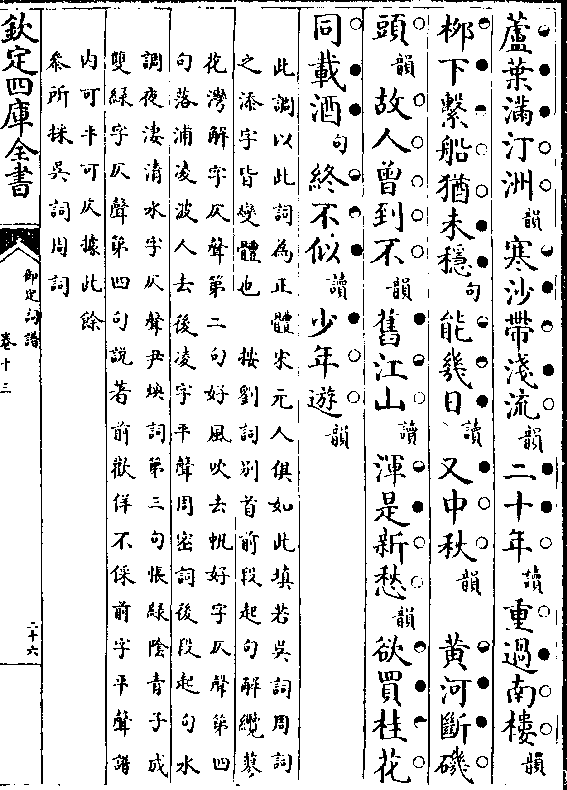 蘆葉滿汀洲韻寒沙帶淺流韻二十年讀重過南樓韻
柳下繫船猶未穩句能幾日讀又中秋韻　黃河斷磯
頭韻故人曾到不韻舊江山讀渾是新愁韻欲買桂花
同載酒句終不似讀少年遊韻
此調以此詞為正體宋元人俱如此填若吳詞周詞
之添字皆變體也　按劉詞別首前段起句解纜蓼
花灣解字仄聲第二句好風吹去帆好字仄聲第四
句落浦凌波人去後凌字平聲周密詞後段起句水
調夜淒清水字仄聲尹煥詞第三句悵綠陰青子成
雙綠字仄聲第四句說著前歡佯不倸前字平聲譜
內可平可仄據此餘
叅所採吳詞周詞
欽定四庫全書
御定詞譜
卷十三
二十六